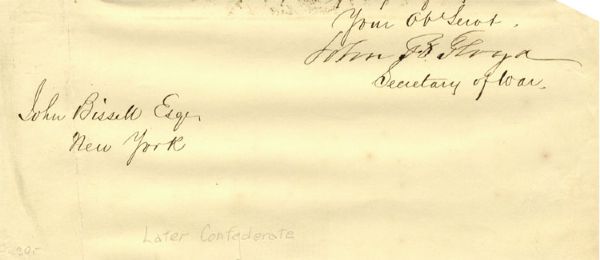 Your Obt Servt.
John B. Floyd
Secretary of War.
John Bissell Esqr
New York
Later Confederate